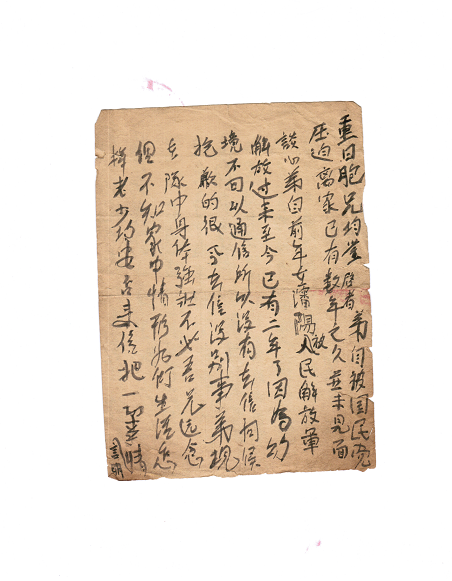 重日胞兄均鉴 啟者 弟自被国民党
压迫离家已有数年之久並未見面
談心弟自前年在瀋陽放人民解放軍
解放过来至今已有二年了因為
境不可以通信所以没有去信问候
抱歉的很 今去信没别事弟現
在隊中身体強壮不必吾兄远念
但不知家中情形如何生活怎
样老少均安否来信把一切事情
言明